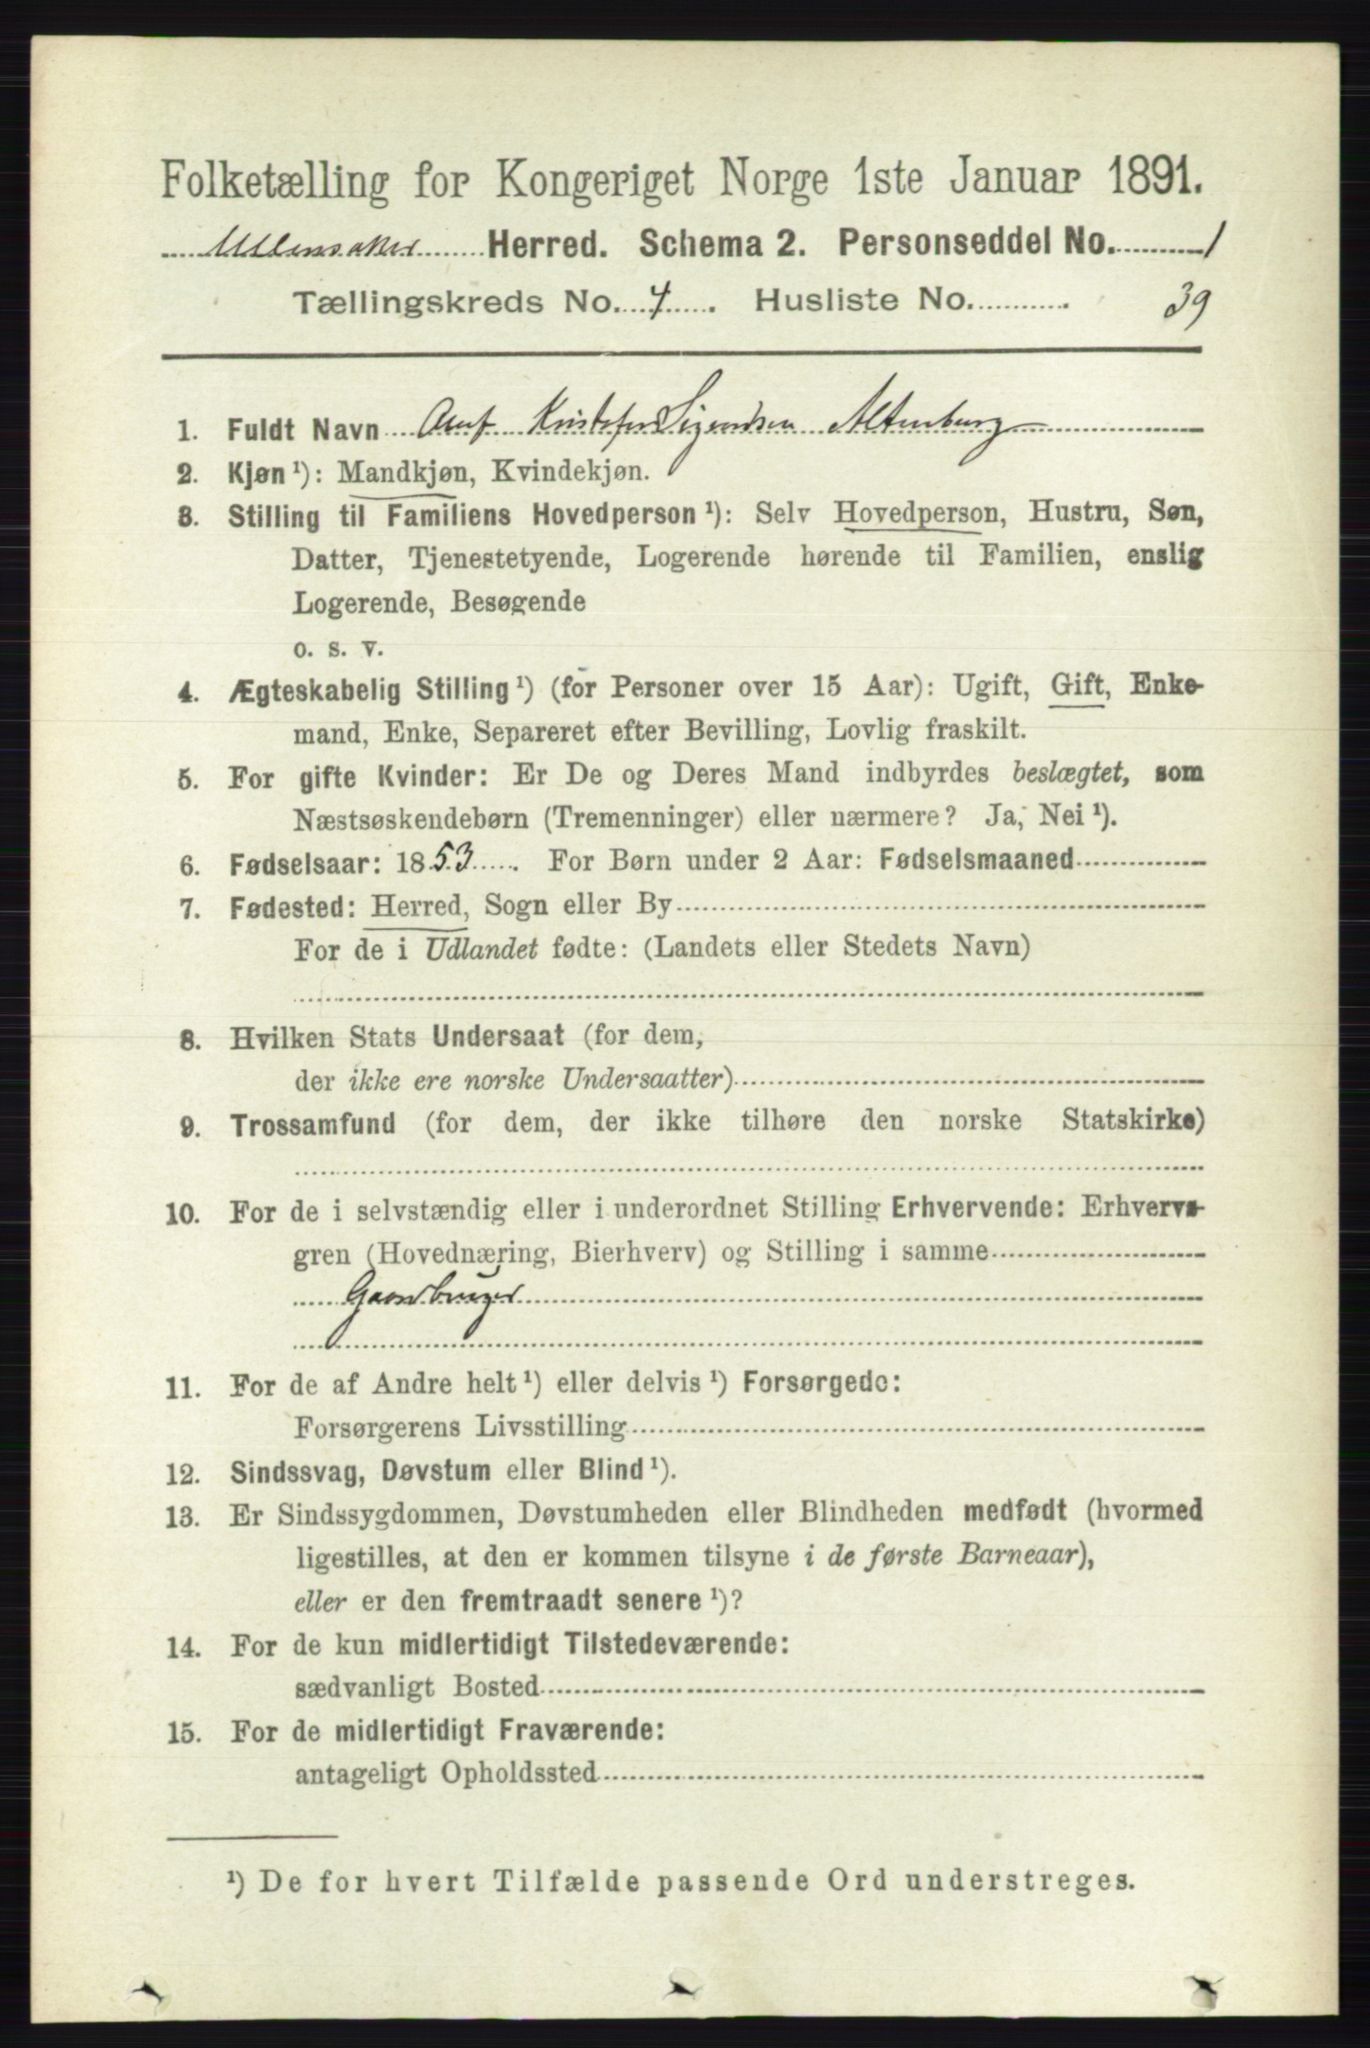 Folketælling for Kongeriget Norge 1ste Januar 1891.
Ullensaker Herred. Schema 2. Personseddel No. 1
Tællingskreds No. 4. Husliste No. 39
1. Fuldt Navn Kristofer Altenburg
2. Kjøn ¹): Mandkjøn, Kvindekjøn.
3. Stilling til Familiens Hovedperson ¹): Selv Hovedperson, Hustru, Søn,
Datter, Tjenestetyende, Logerende hørende til Familien, enslig
Logerende, Besøgende
o. s. v.
4. Ægteskabelig Stilling ¹) (for Personer over 15 Aar): Ugift, Gift, Enke-
mand, Enke, Separeret efter Bevilling, Lovlig fraskilt.
5. For gifte Kvinder: Er De og Deres Mand indbyrdes beslægtet, som
Næstsøskendebørn (Tremenninger) eller nærmere? Ja, Nei ¹).
6. Fødselsaar: 1853. For Børn under 2 Aar: Fødselsmaaned
7. Fødested: Herred, Sogn eller By
For de i Udlandet fødte: (Landets eller Stedets Navn)
8. Hvilken Stats Undersaat (for dem,
der ikke ere norske Undersaatter)
9. Trossamfund (for dem, der ikke tilhøre den norske Statskirke)
10. For de i selvstændig eller i underordnet Stilling Erhvervende: Erhvervs-
gren (Hovednæring, Bierhverv) og Stilling i samme
Gaardbruger
11. For de af Andre helt ¹) eller delvis ¹) Forsørgede:
Forsørgerens Livsstilling
12. Sindssvag, Døvstum eller Blind ¹).
13. Er Sindssygdommen, Døvstumheden eller Blindheden medfødt (hvormed
ligestilles, at den er kommen tilsyne i de første Barneaar),
eller er den fremtraadt senere ¹)?
14. For de kun midlertidigt Tilstedeværende:
sædvanligt Bosted
15. For de midlertidigt Fraværende:
antageligt Opholdssted
¹) De for hvert Tilfælde passende Ord understreges.